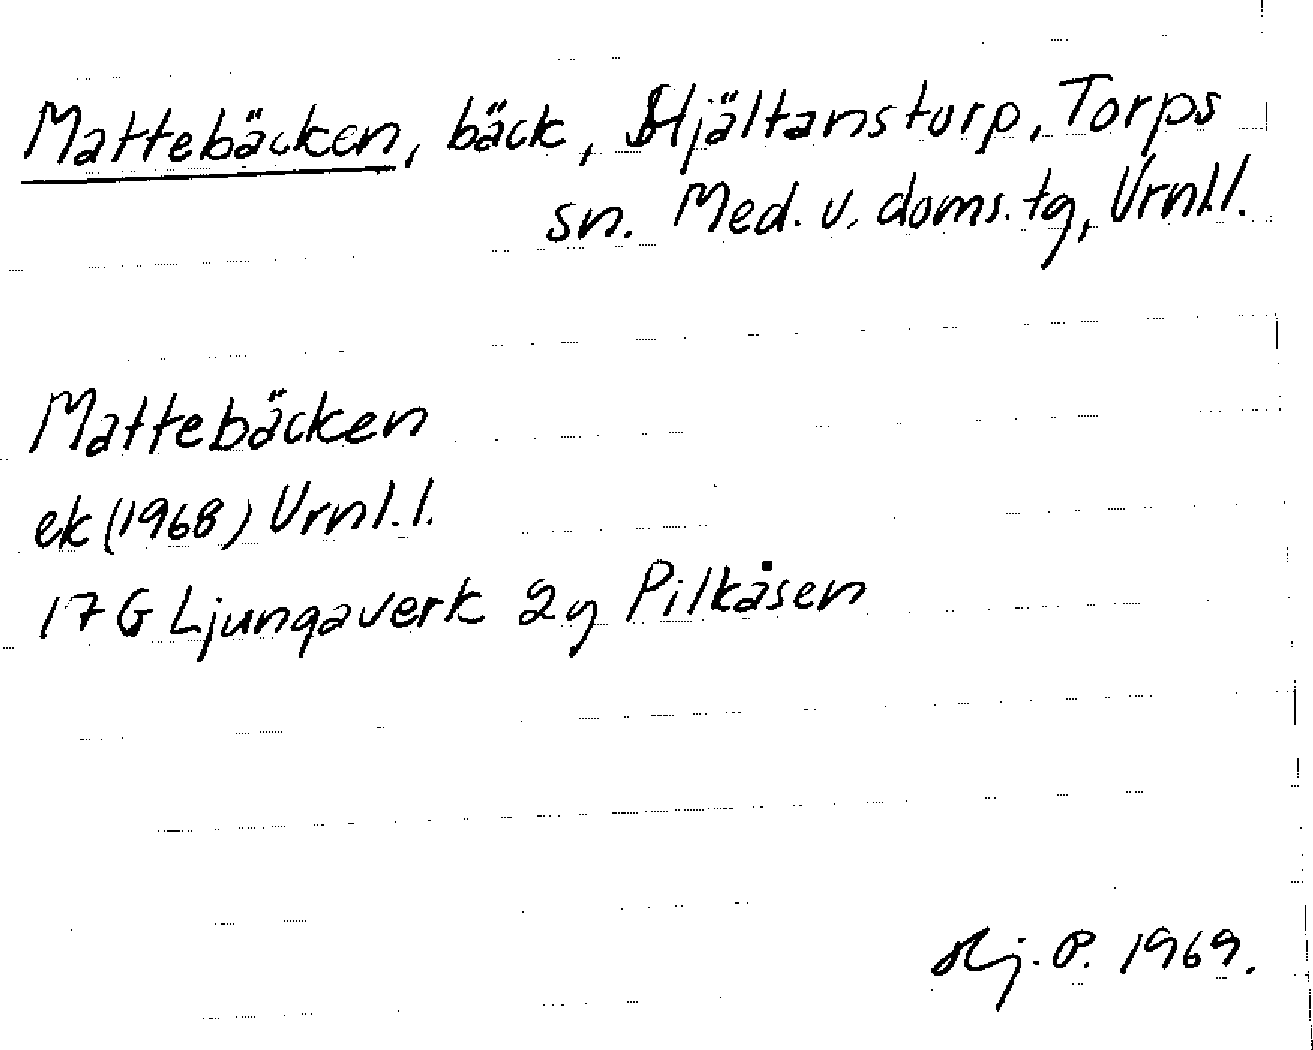 Mattebäcken, bäck, Hjältanstorp, Torps
sn. Med. v. doms. tg, Vrnl.l.
Mattebäcken
ek (1968) Vrnl.l.
17 G Ljungaverk 2g Pilkåsen
Hj. P. 1969.